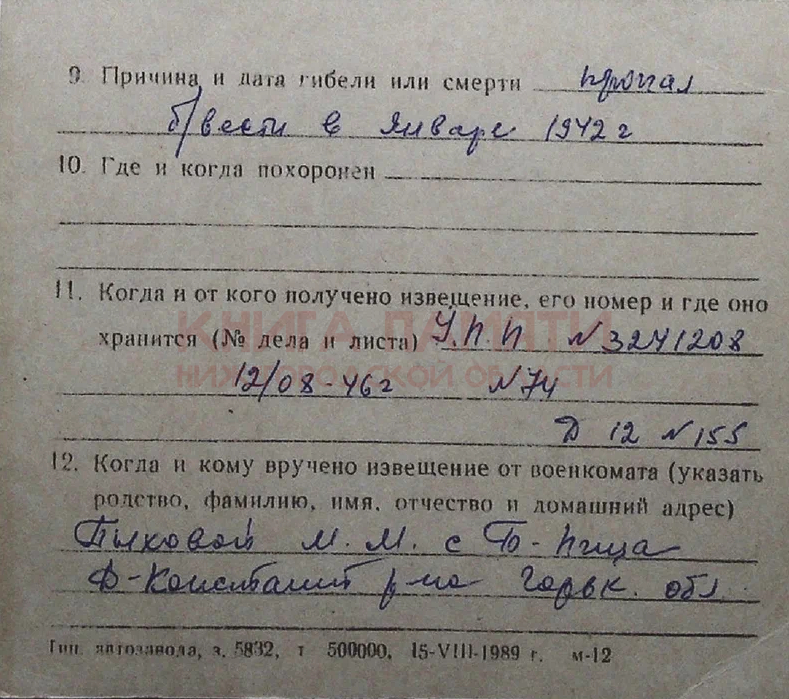 9. Причина и дата гибели или смерти пропал
б/вести в Январе 1942 г
10. Где и когда похоронен
11. Когда и от кого получено извещение, его номер и где оно
хранится (№ дела и листа) У.П.П N 3241208
КНИГА ПАМЯТИ
НИЖЕГОРОДСКОЙ ОБЛАСТИ
12/08-46г N74
Д 12 N 155
12. Когда и кому вручено извещение от военкомата (указать
родство, фамилию, имя, отчество и домашний адрес)
М. М. с
Д-Констант р-на Горьк. обл.
Тип. автозавода, з. 5832, т 500000, 15-VIII-1989 г. м-12